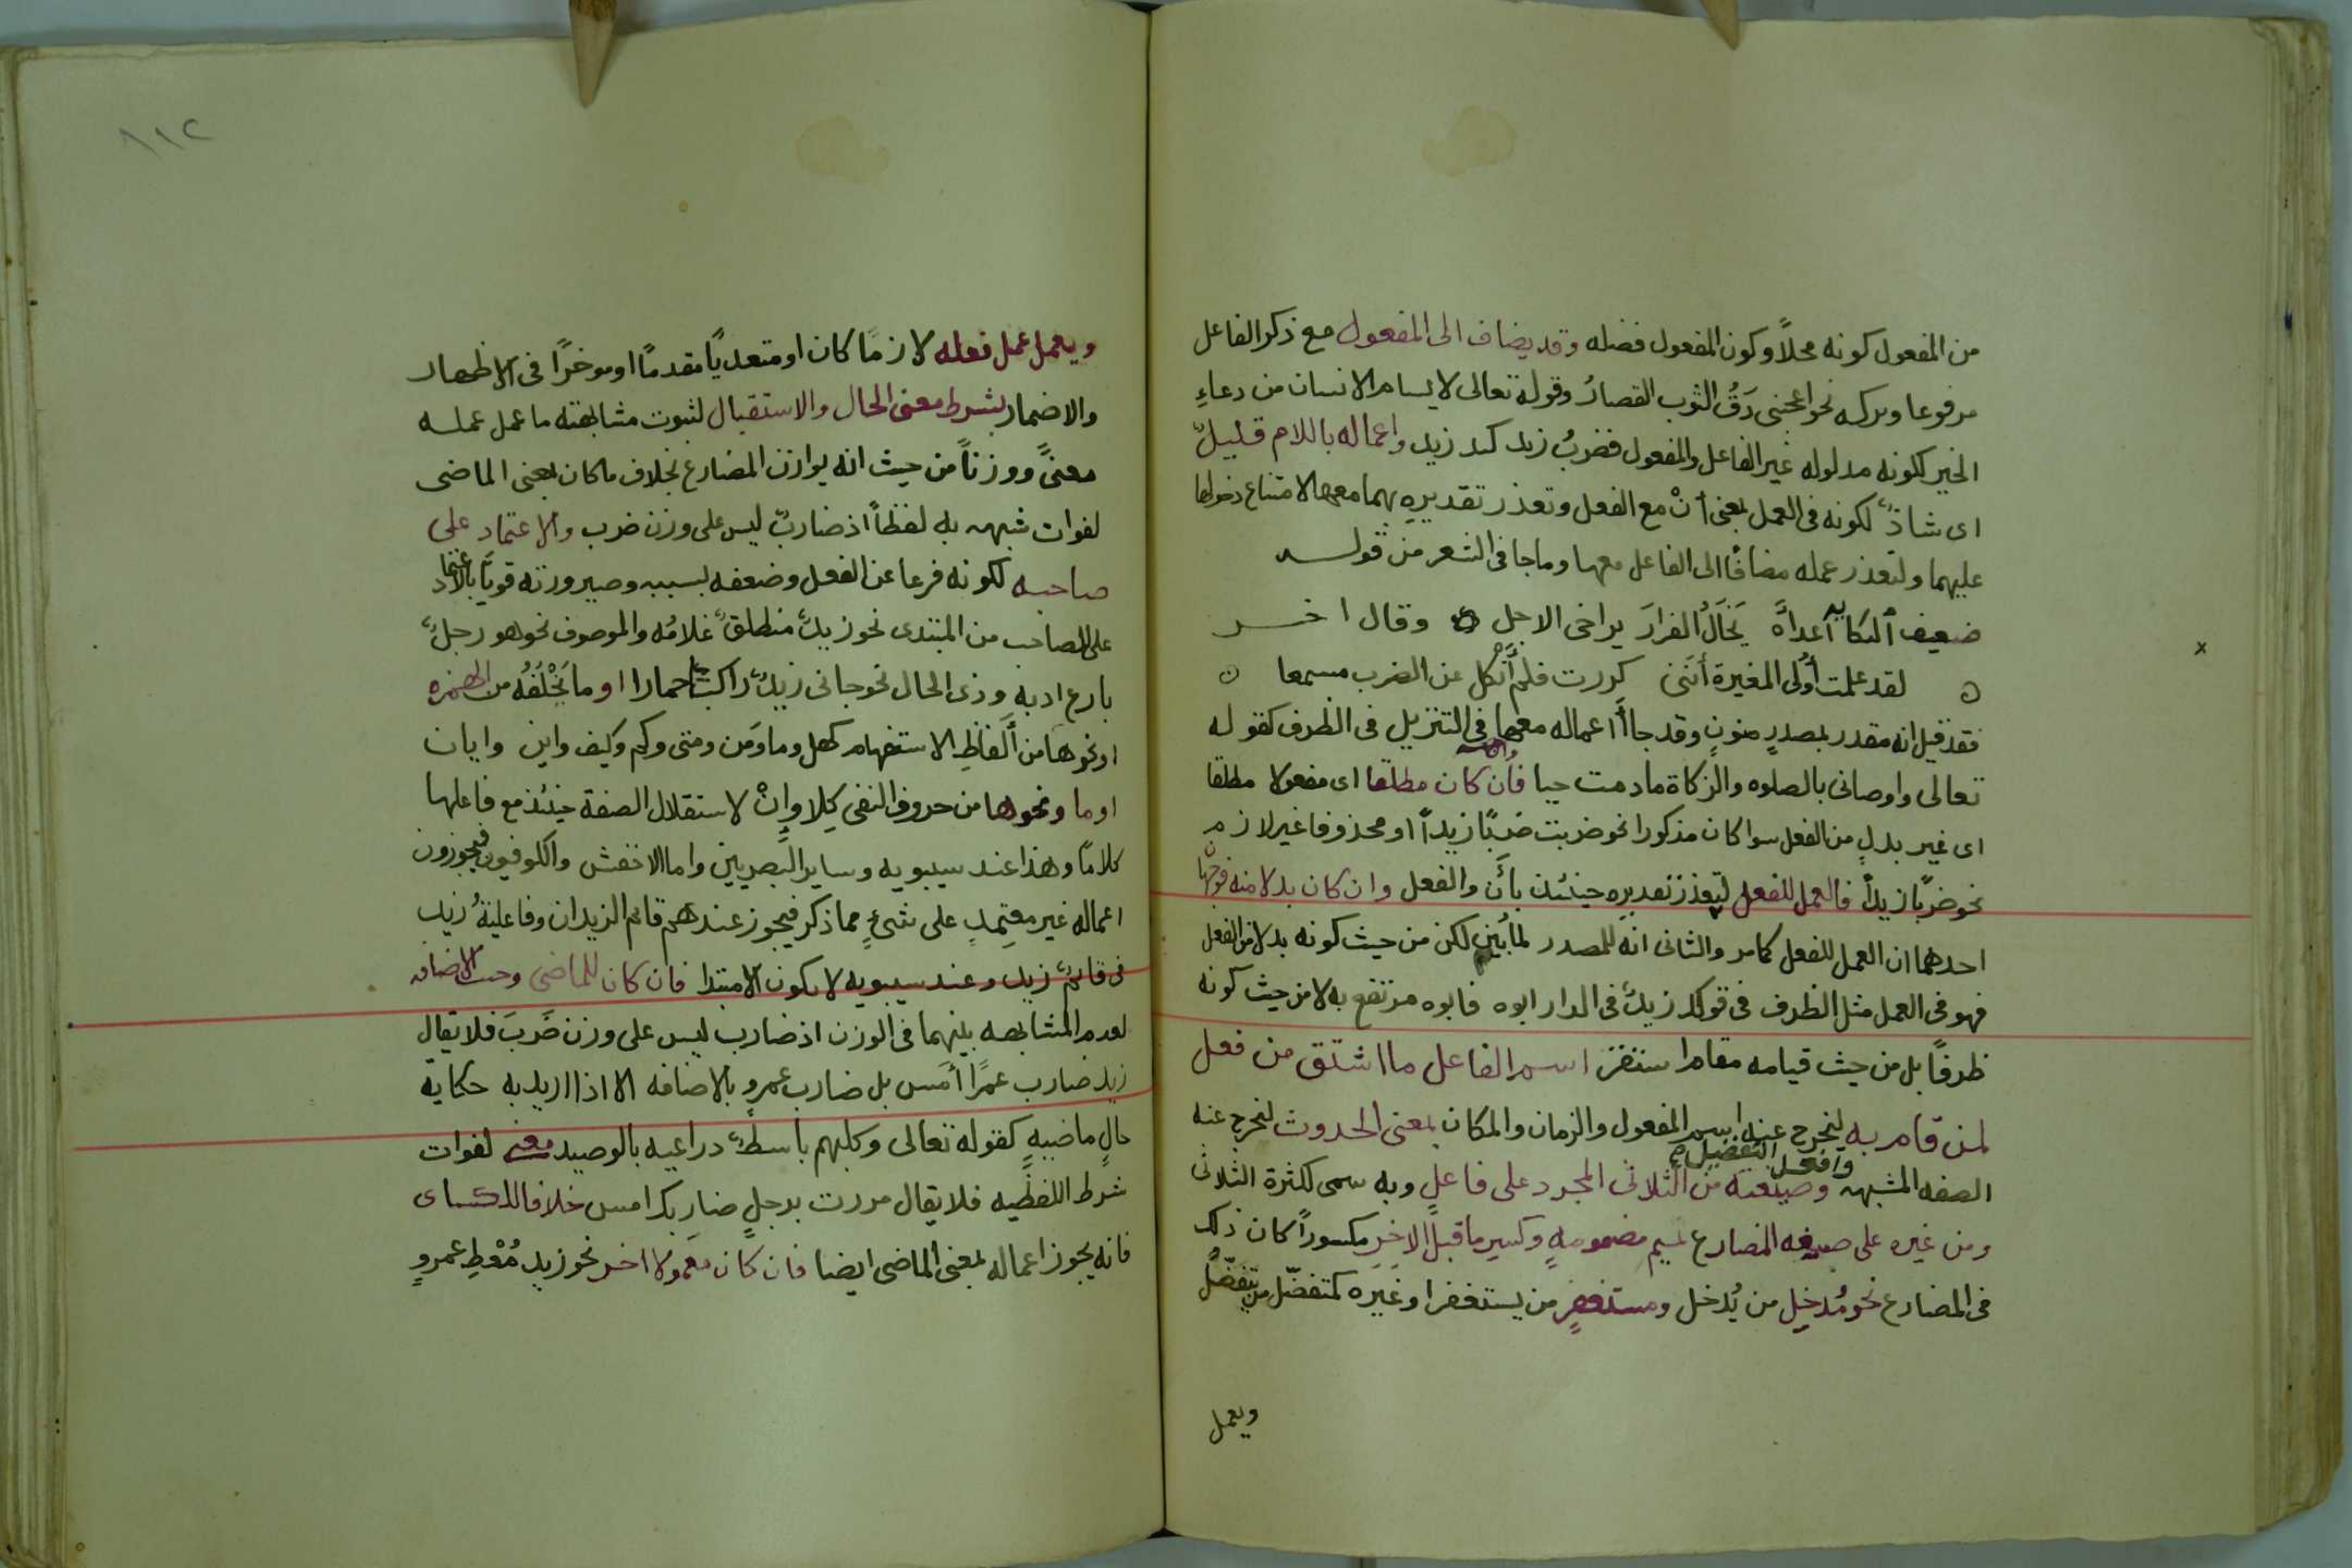 من المفعول كونه محلاً وكون المفعول فضله وقد يضاف الى المفعول مع ذكر الفاعل
مرفوعا وتركه نحو اعجبنى دَقُّ الثوب القصارُ وقوله تعالى لا يسام الانسان من دعاءِ
الخير لكونه مدلوله غير الفاعل والمفعول فضربُ زيد كيد زيد واعماله باللام قليلٌ
اى شاذٌ لكونه فى العمل بمعنى أنْ مع الفعل وتعذر تقديرِه بهما معها لامتناع دخولها
عليهما ولتعذر عمله مضافًا الى الفاعل معها وما جا فى الشعر من قوله
ضعيف النكايه أعداءَه يَخَالُ الفرارَ يراخى الاجل وقال اخر
لقد علمت أُولى المغيرة أنَّنى كررت فلم أَنْكُل عن الضرب مسمعا
فقد قيل انه مقدر بمصدرٍ منونٍ وقد جاأ اعماله معها فى التنزيل فى الظرف كقوله
تعالى واوصانى بالصلوه والزكاة ما دمت حيا فان كان مطلقا اى مفعولا مطلقا
اى غير بدلٍ من الفعل سوا كان مذكورا نحو ضربت ضربًا زيداً او محذوفا غير لازم
نحو ضربًا زيداً فالعمل للفعل لتعذر تقديرِه حينئذ بأَن والفعل وان كان بدلا منه فوجهان
احدهما ان العمل للفعل كما مر والثانى انه للمصدر لما بُيّن لكن من حيث كونه بدلا من الفعل
فهو فى العمل مثل الظرف فى قولك زيدٌ فى الدار ابوه فابوه مرتفع به لا من حيث كونه
ظرفًا بل من حيث قيامه مقام استقر اسم الفاعل ما اشتق من فعل
لمن قام به ليخرج عنه اسم المفعول والزمان والمكان بمعنى الحدوث ليخرج عنه
وافعل التفضيل صح
الصفه المشبهه وصيغته من الثلاثى المجرد على فاعلٍ وبه سمى لكثرة الثلاثى
ومن غيره على صيغه المضارع بميم مضمومهٍ وكسرِ ما قبل الاخرِ مكسوراً كان ذلك
فى المضارع نحو مُدخِل من يُدخل ومستغفرٍ من يستغفر او غيره كمتفضّل من يتفضّل
ويعمل
١١٢
ويعمل عمل فعله لازمًا كان او متعديًا مقدمًا او موخرًا فى الاظهار
والاضمار بشرط معنى الحال والاستقبال لثبوت مشابهته ما عمل عمله
معنًى ووزناً من حيث انه يوازن المضارع بخلاف ما كان بمعنى الماضى
لفوات شبهه به لفظاً اذ ضاربٌ ليس على وزن ضرب والاعتماد على
صاحبه لكونه فرعا عن الفعل وضعفه بسببه وصيرورته قويًا بالاعتماد
على الصاحب من المبتدى نحو زيدٌ منطلقٌ غلامُه والموصوف نحو هو رجلٌ
بارع ادبه وذى الحال نحو جانى زيدٌ راكبًا حمارا او ما يَخْلُفُه من الهمزه
او نحوها من أَلفاظِ الاستفهام كهل وما ومَن ومتى وكم وكيف واين وايان
او ما ونحوها من حروف النفى كلا وإِنْ لاستقلال الصفة حينئذ مع فاعلها
كلامًا وهذا عند سيبويه وساير البصريين واما الاخفش والكوفيون فيجوزون
اعماله غير معتمِدٍ على شئٍ مما ذكر فيجوز عندهم قائم الزيدان وفاعليةُ زيد
فى قائمٌ زيد وعند سيبويه لا يكون الا مبتدا فان كان للماضى وجبت الاضافه
لعدم المشابهه بينهما فى الوزن اذ ضارب ليس على وزن ضَرَبَ فلا يقال
زيد ضارب عمرًا أمس بل ضارب عمروٍ بالاضافه الا اذا اريد به حكاية
حالٍ ماضيهٍ كقوله تعالى وكلبهم باسطٌ ذراعيه بالوصيد معنى لفوات
شرط اللفظيه فلا يقال مررت برجلٍ ضاربك امس خلافا للكساى
فانه يجوز اعماله بمعنى الماضى ايضا فان كان معمولا اخر نحو زيد مُعْطِ عمروٍ